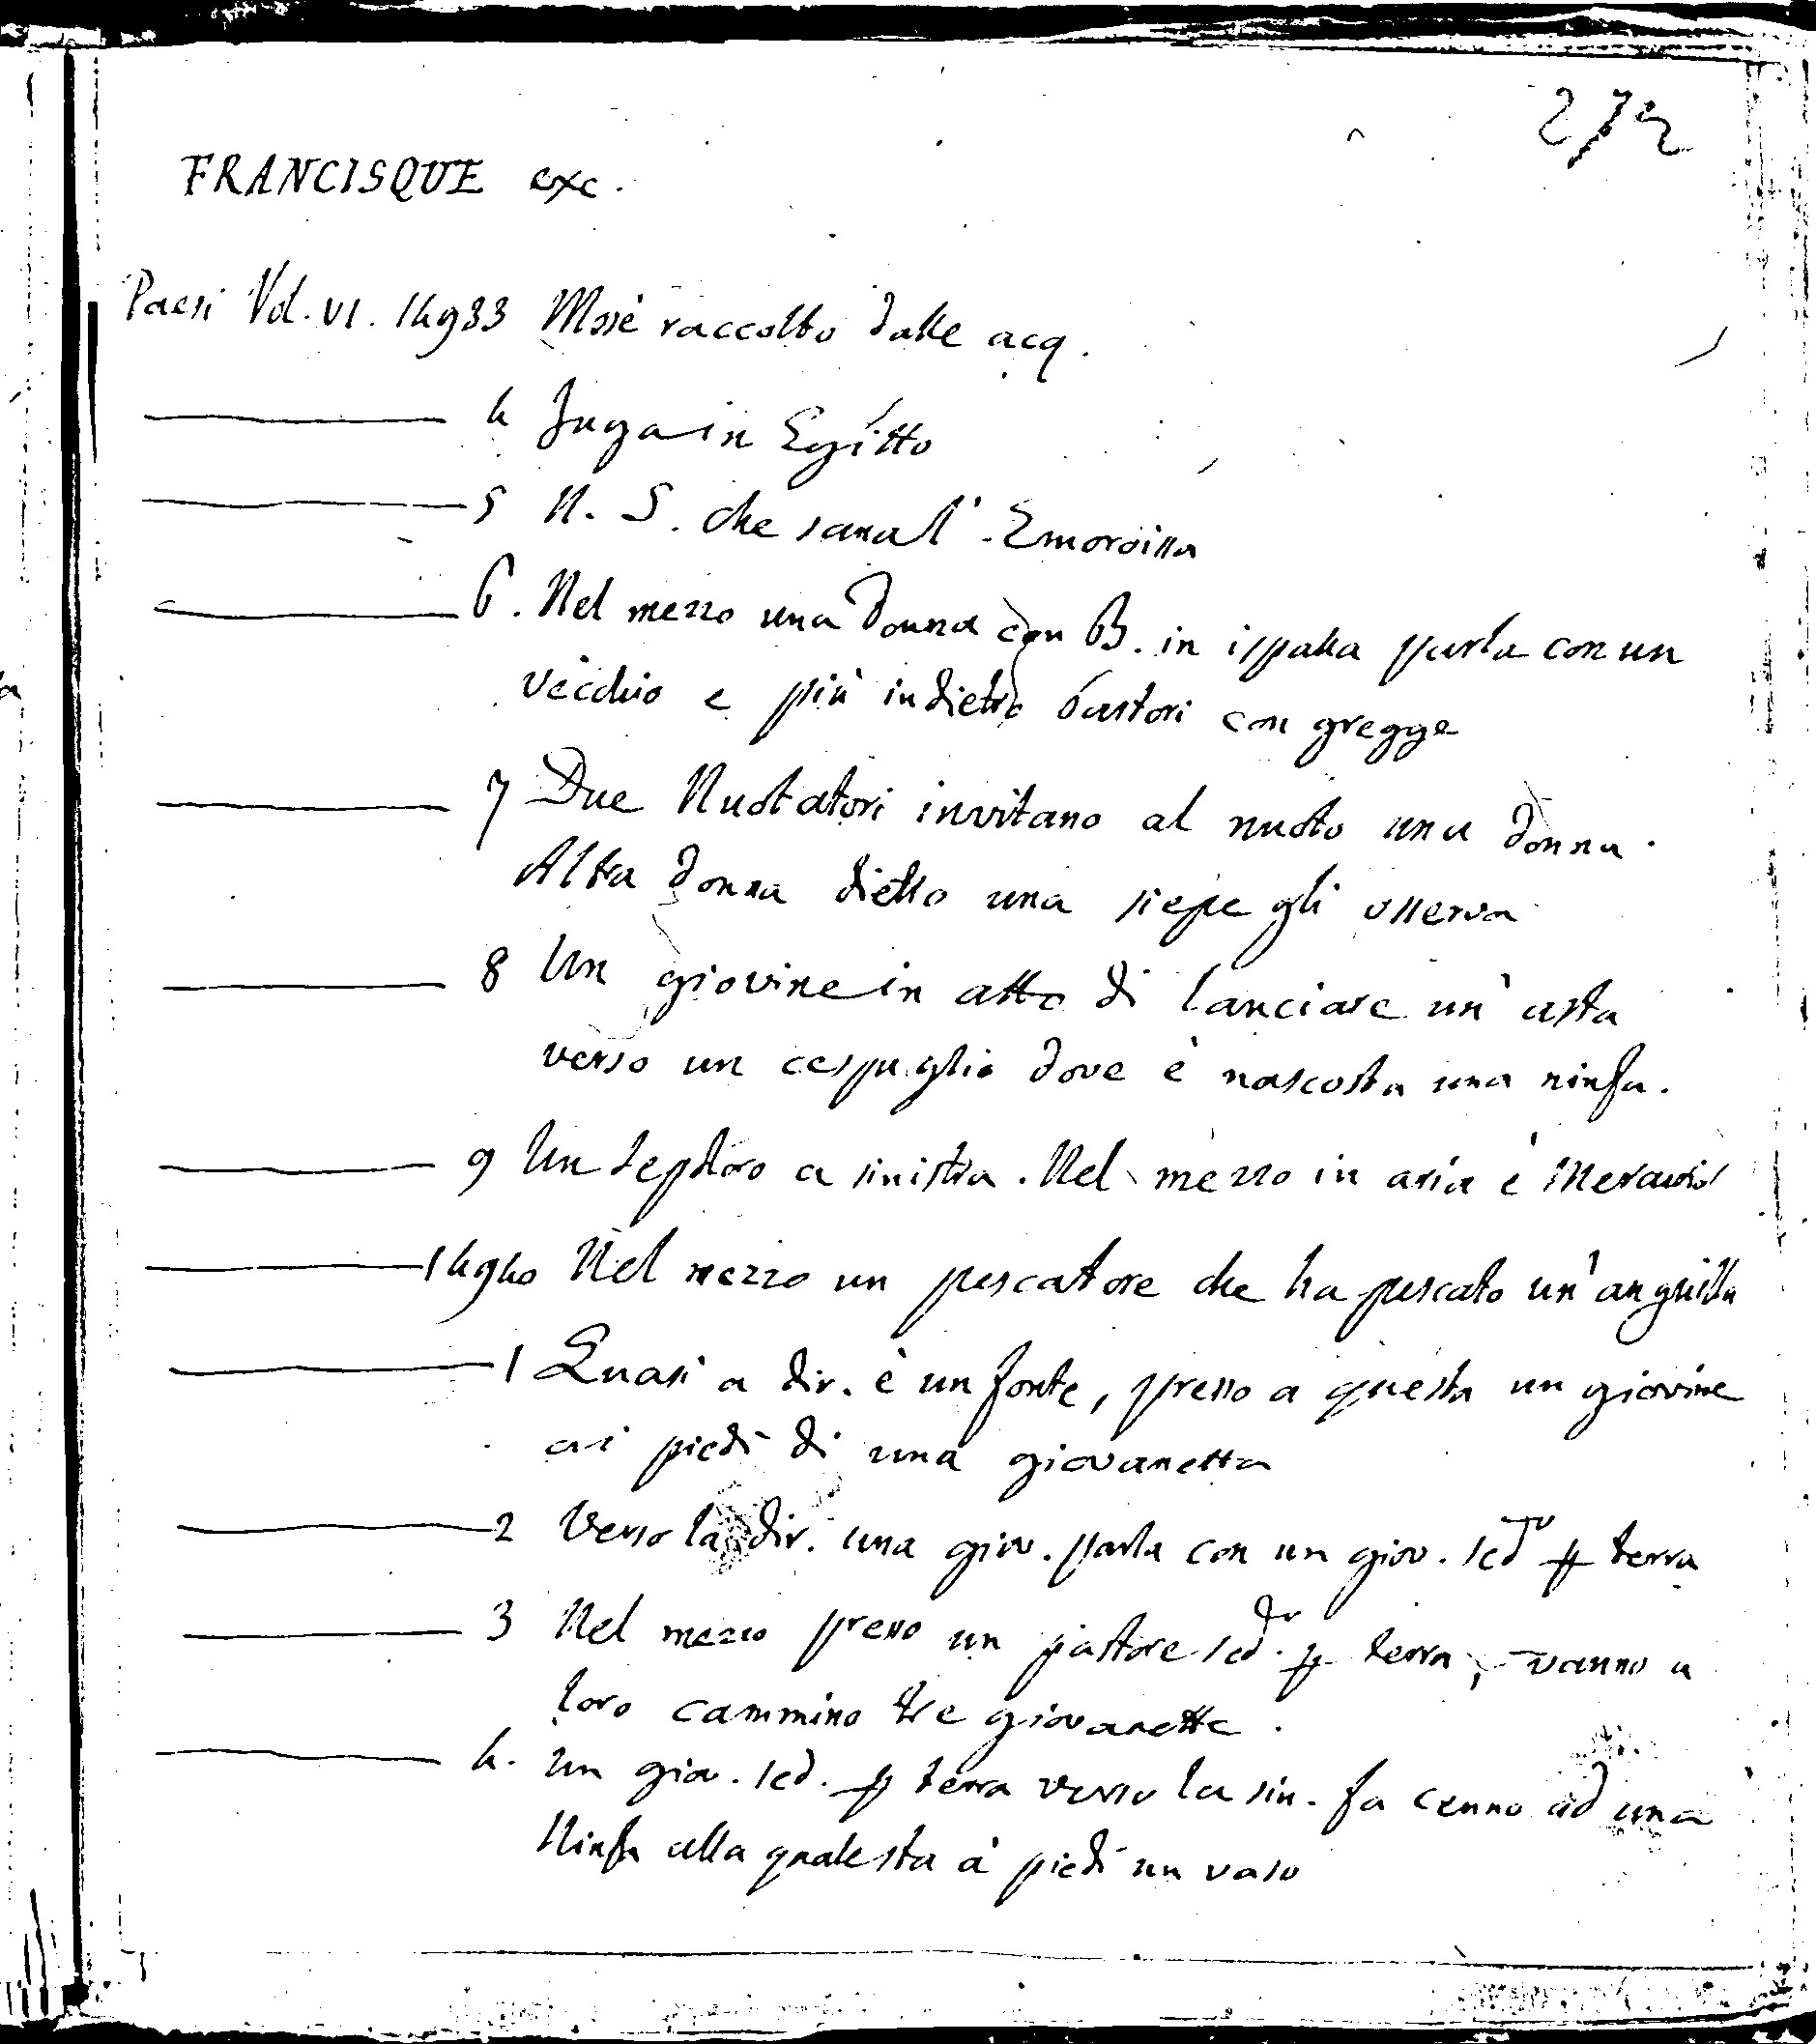 272
FRANCISQUE exc.
Paesi Vol. VI. 14933 Mosè raccolto dalle acq.
4 Fuga in Egitto
5 N. S. che sana l'Emoroissa
6. Nel mezzo una donna con B. in ispalla parla con un
vecchio e più indietro Pastori con gregge
7 Due Nuotatori invitano al nuoto una donna.
Altra donna dietro una siepe gli osserva
8 Un giovine in atto di lanciare un'asta
verso un cespuglio dove è nascosta una ninfa.
9 Un a sinistra. Nel mezzo in aria è Mercurio
14940 Nel mezzo un pescatore che ha pescato un'anguilla
1 Quasi a dir. è un fonte, presso a questa un giovine
ai piedi di una giovanetta
2 Verso la dir. una giov. parla con un giov. sed. p terra
3 Nel mezzo presso un pastore sed. p terra, vanno a
loro cammino tre giovanette.
4. Un giov. sed. p terra verso la sin. fa cenno ad una
Ninfa alla quale sta a' piedi un vaso